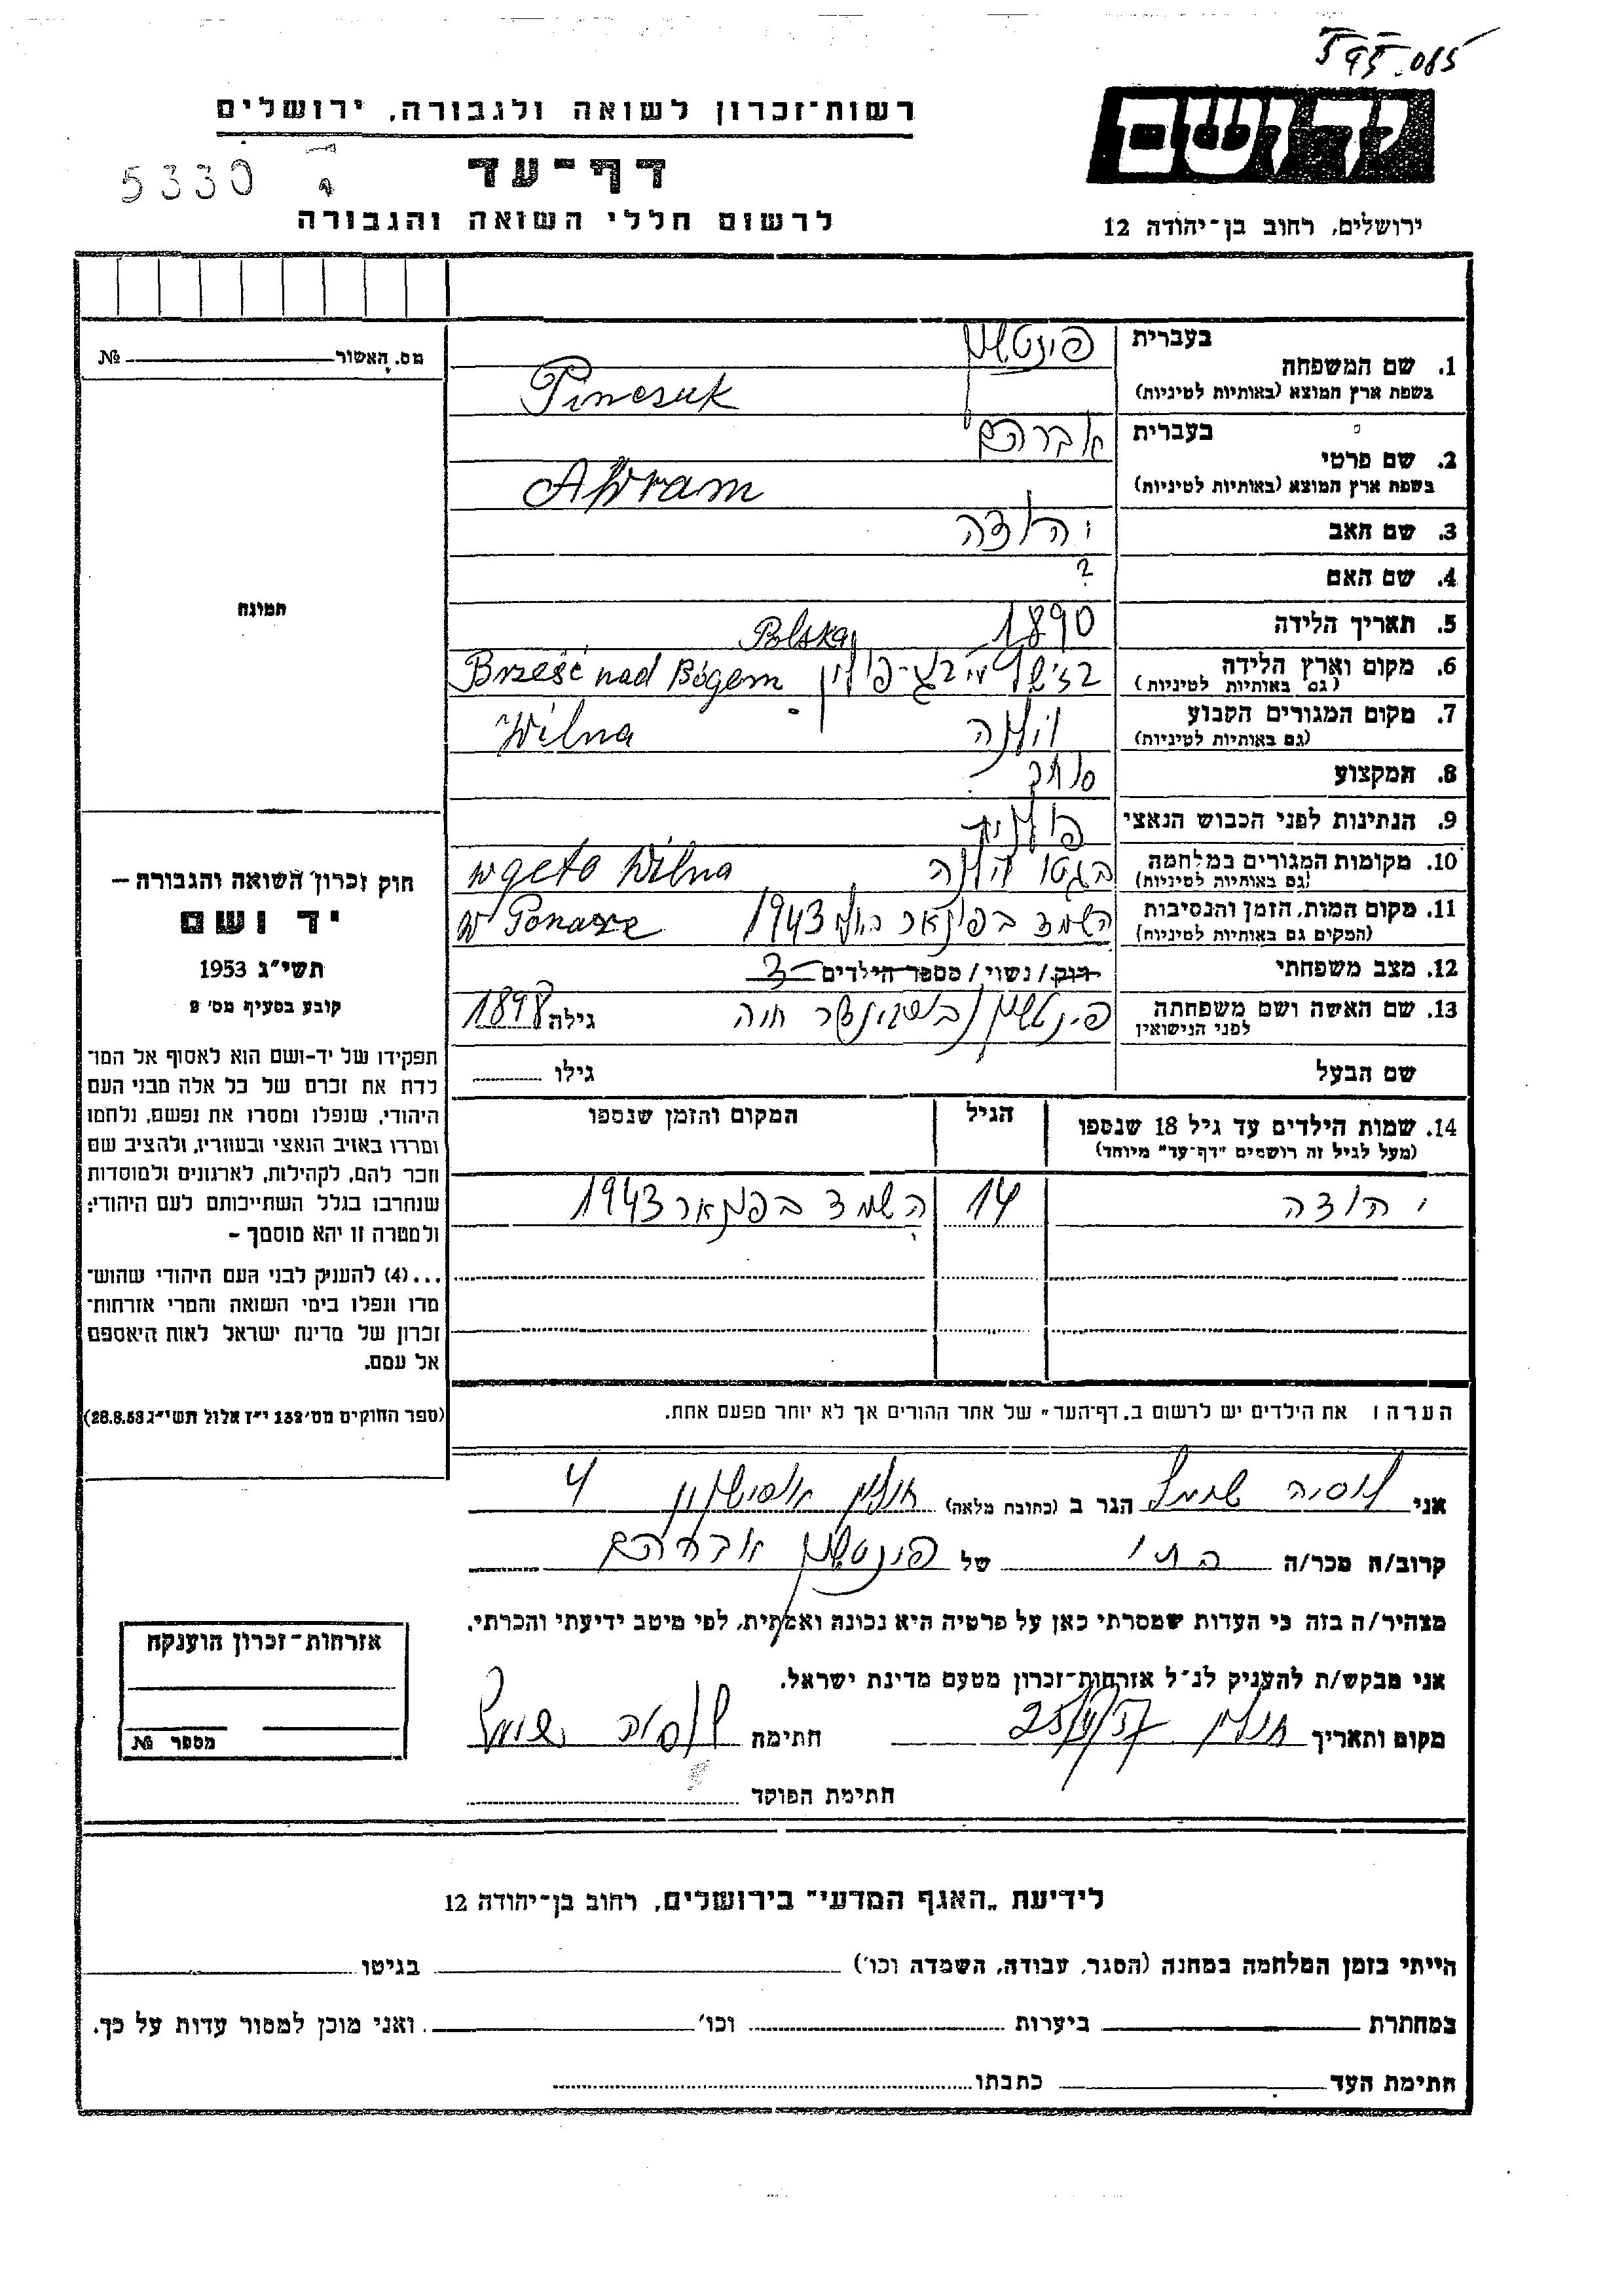 595.085
רשות־זכרון לשואה ולגבורה, ירושלים
יד ושם
5330
דף־עד
לרשום חללי השואה והגבורה
ירושלים, רחוב בן־יהודה 12
מס. האשור № 
תמונה
בעברית פינטשוק
1. שם המשפחה
בשפת ארץ המוצא (באותיות לטיניות) Pinczuk
בעברית אברהם
2. שם פרטי
בשפת ארץ המוצא (באותיות לטיניות) Abram
3. שם האב יהודה
4. שם האם ?
5. תאריך הלידה 1890 Polska
6. מקום וארץ הלידה Brześć nad Bógem
(גם באותיות לטיניות)
7. מקום המגורים הקבוע וילנה Wilna
(גם באותיות לטיניות)
8. המקצוע סוחר
9. הנתינות לפני הכבוש הנאצי פולנית
10. מקומות המגורים במלחמה בגטו וילנה w geto Wilna
(גם באותיות לטיניות)
11. מקום המות, הזמן והנסיבות הושמד בפונאר 1943 w Ponarze
(המקום גם באותיות לטיניות)
12. מצב משפחתי רוק / נשוי / מספר הילדים 3
13. שם האשה ושם משפחתה פינטשוק חוה גילה 1898
לפני הנישואין
שם הבעל גילו
14. שמות הילדים עד גיל 18 שנספו הגיל המקום והזמן שנספו
(מעל לגיל זה רושמים "דף־עד" מיוחד)
יהודה 14 הושמד בפונאר 1943
חוק זכרון השואה והגבורה —
יד ושם
תשי"ג 1953
קובע בסעיף מס' 2
תפקידו של יד-ושם הוא לאסוף אל המו־
לדת את זכרם של כל אלה מבני העם
היהודי, שנפלו ומסרו את נפשם, נלחמו
ומרדו באויב הנאצי ובעוזריו, ולהציב שם
וזכר להם, לקהילות, לארגונים ולמוסדות
שנחרבו בגלל השתייכותם לעם היהודי;
ולמטרה זו יהא מוסמך –
...(4) להעניק לבני העם היהודי שהוש־
מדו ונפלו בימי השואה והמרי אזרחות־
זכרון של מדינת ישראל לאות היאספם
אל עמם.
(ספר החוקים מס' 132 י"ז אלול תשי"ג 28.8.53)
הערה: את הילדים יש לרשום ב„דף־העד" של אחד ההורים אך לא יותר מפעם אחת.
אני הגר ב (כתובת מלאה) חולון 4
קרוב/ה מכר/ה בתו של פינטשוק אברהם
מצהיר/ה בזה כי העדות שמסרתי כאן על פרטיה היא נכונה ואמתית, לפי מיטב ידיעתי והכרתי.
אני מבקש/ת להעניק לנ"ל אזרחות־זכרון מטעם מדינת ישראל.
מקום ותאריך חולון חתימה
חתימת הפוקד
אזרחות־זכרון הוענקה
מספר №
לידיעת „האגף המדעי" בירושלים, רחוב בן־יהודה 12
הייתי בזמן המלחמה במחנה (הסגר, עבודה, השמדה וכו') בגיטו
במחתרת ביערות וכו' ואני מוכן למסור עדות על כך.
חתימת העד כתבתו